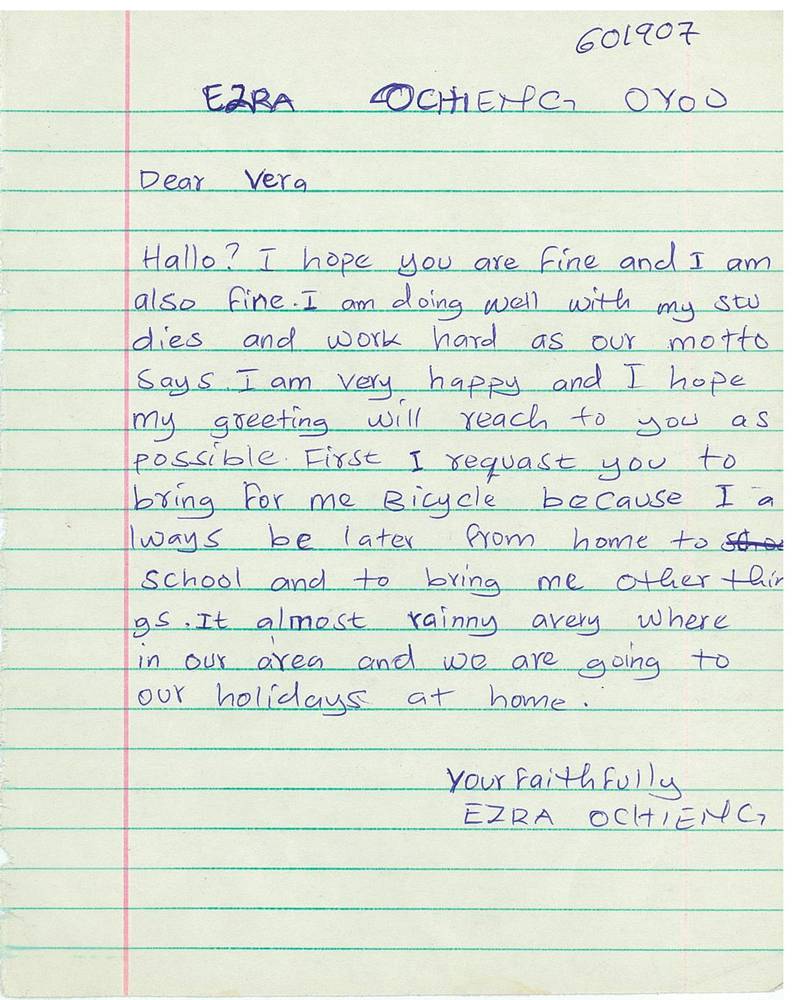 601907
EZRA OCHIENG OYOO
Dear Vera
Hallo? I hope you are fine and I am
also fine. I am doing well with my stu
dies and work hard as our motto
says. I am very happy and I hope
my greeting will reach to you as
possible. First I requast you to
bring for me Bicycle because I a
lways be later from home to
school and to bring me other thin
gs. It almost rainny avery where
in our area and we are going to
our holidays at home.
Your faithfully
EZRA OCHIENG